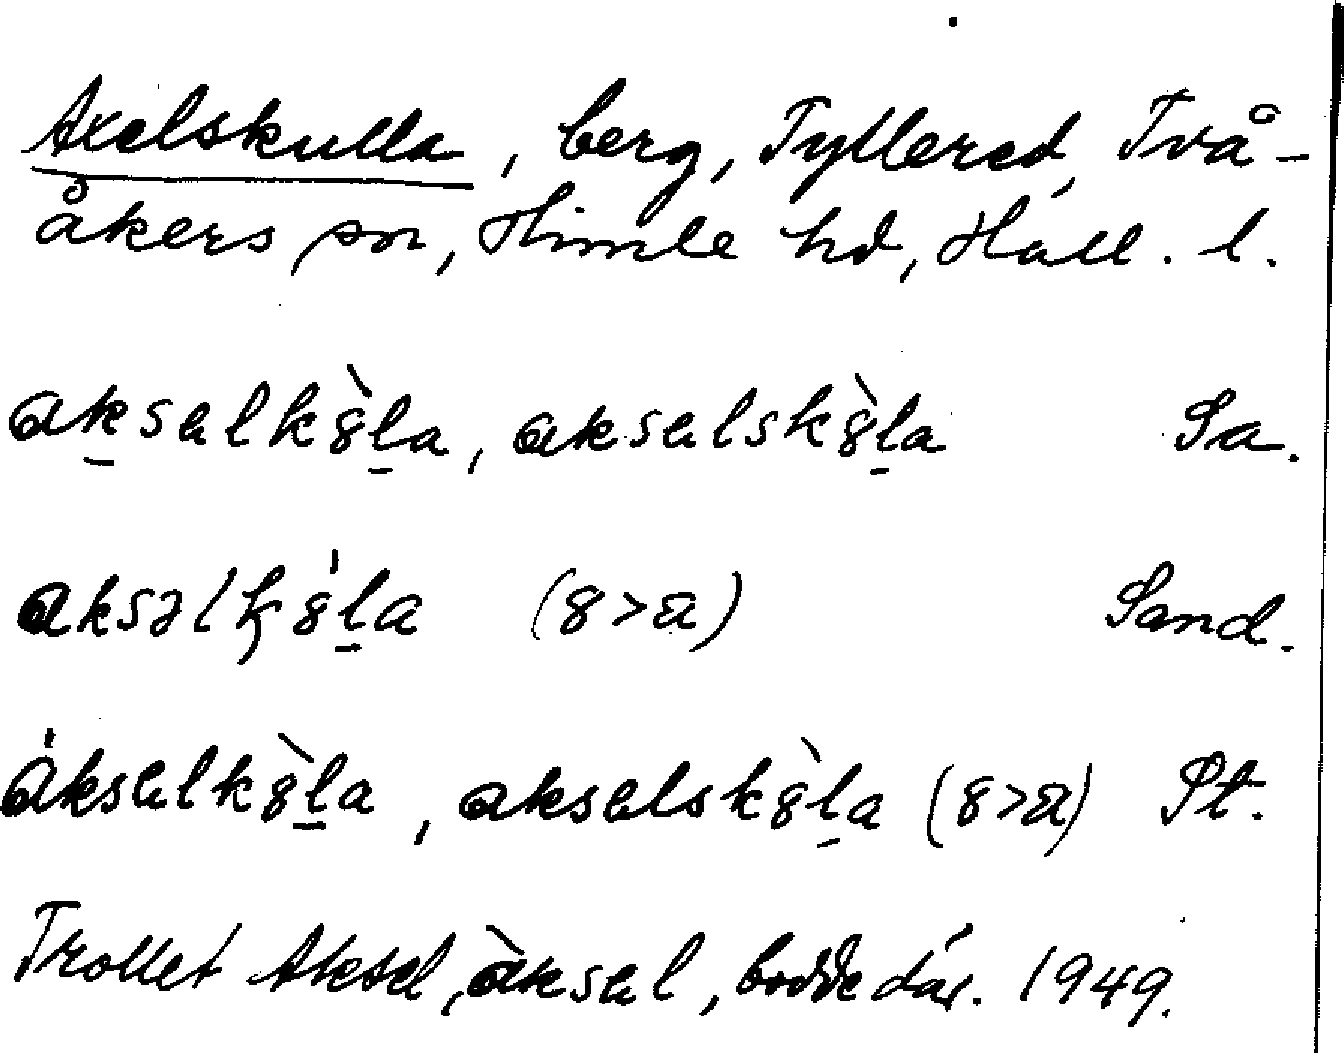 Axelskulla, berg, Tyllered, Två-
åkers sn, Himle hd, Hall. l.
aksɐlk8̀l̠a, aksɐlsk8̀l̠a Sa.
aksəlk8́l̠a (8>a) Sand.
áksɐlk8̀l̠a, aksɐlsk8̀l̠a (8>a) St.
Trollet Aksel, àksɐl, bodde där. 1949.